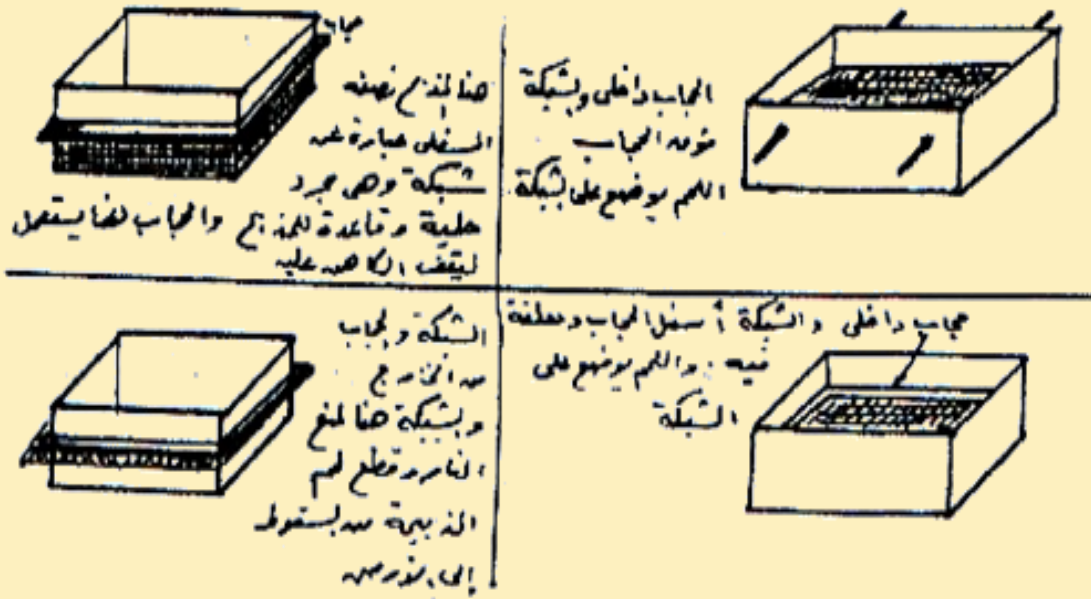 الحجاب داخلى والشبكة
فوق الحجاب
اللحم يوضع على الشبكة
حجاب
هنا المذبح نصفه
السفلى عبارة عن
شبكة وهى مجرد
حلية وقاعدة للمذبح والحجاب هنا يستعمل
ليقف الكاهن عليه
حجاب داخلى والشبكة أسفل الحجاب ومعلقة
فيه . واللحم يوضع على
الشبكة
الشبكة والحجاب
من الخارج
والشبكة هنا لمنع
النار وقطع لحم
الذبيحة من السقوط
إلى الأرض